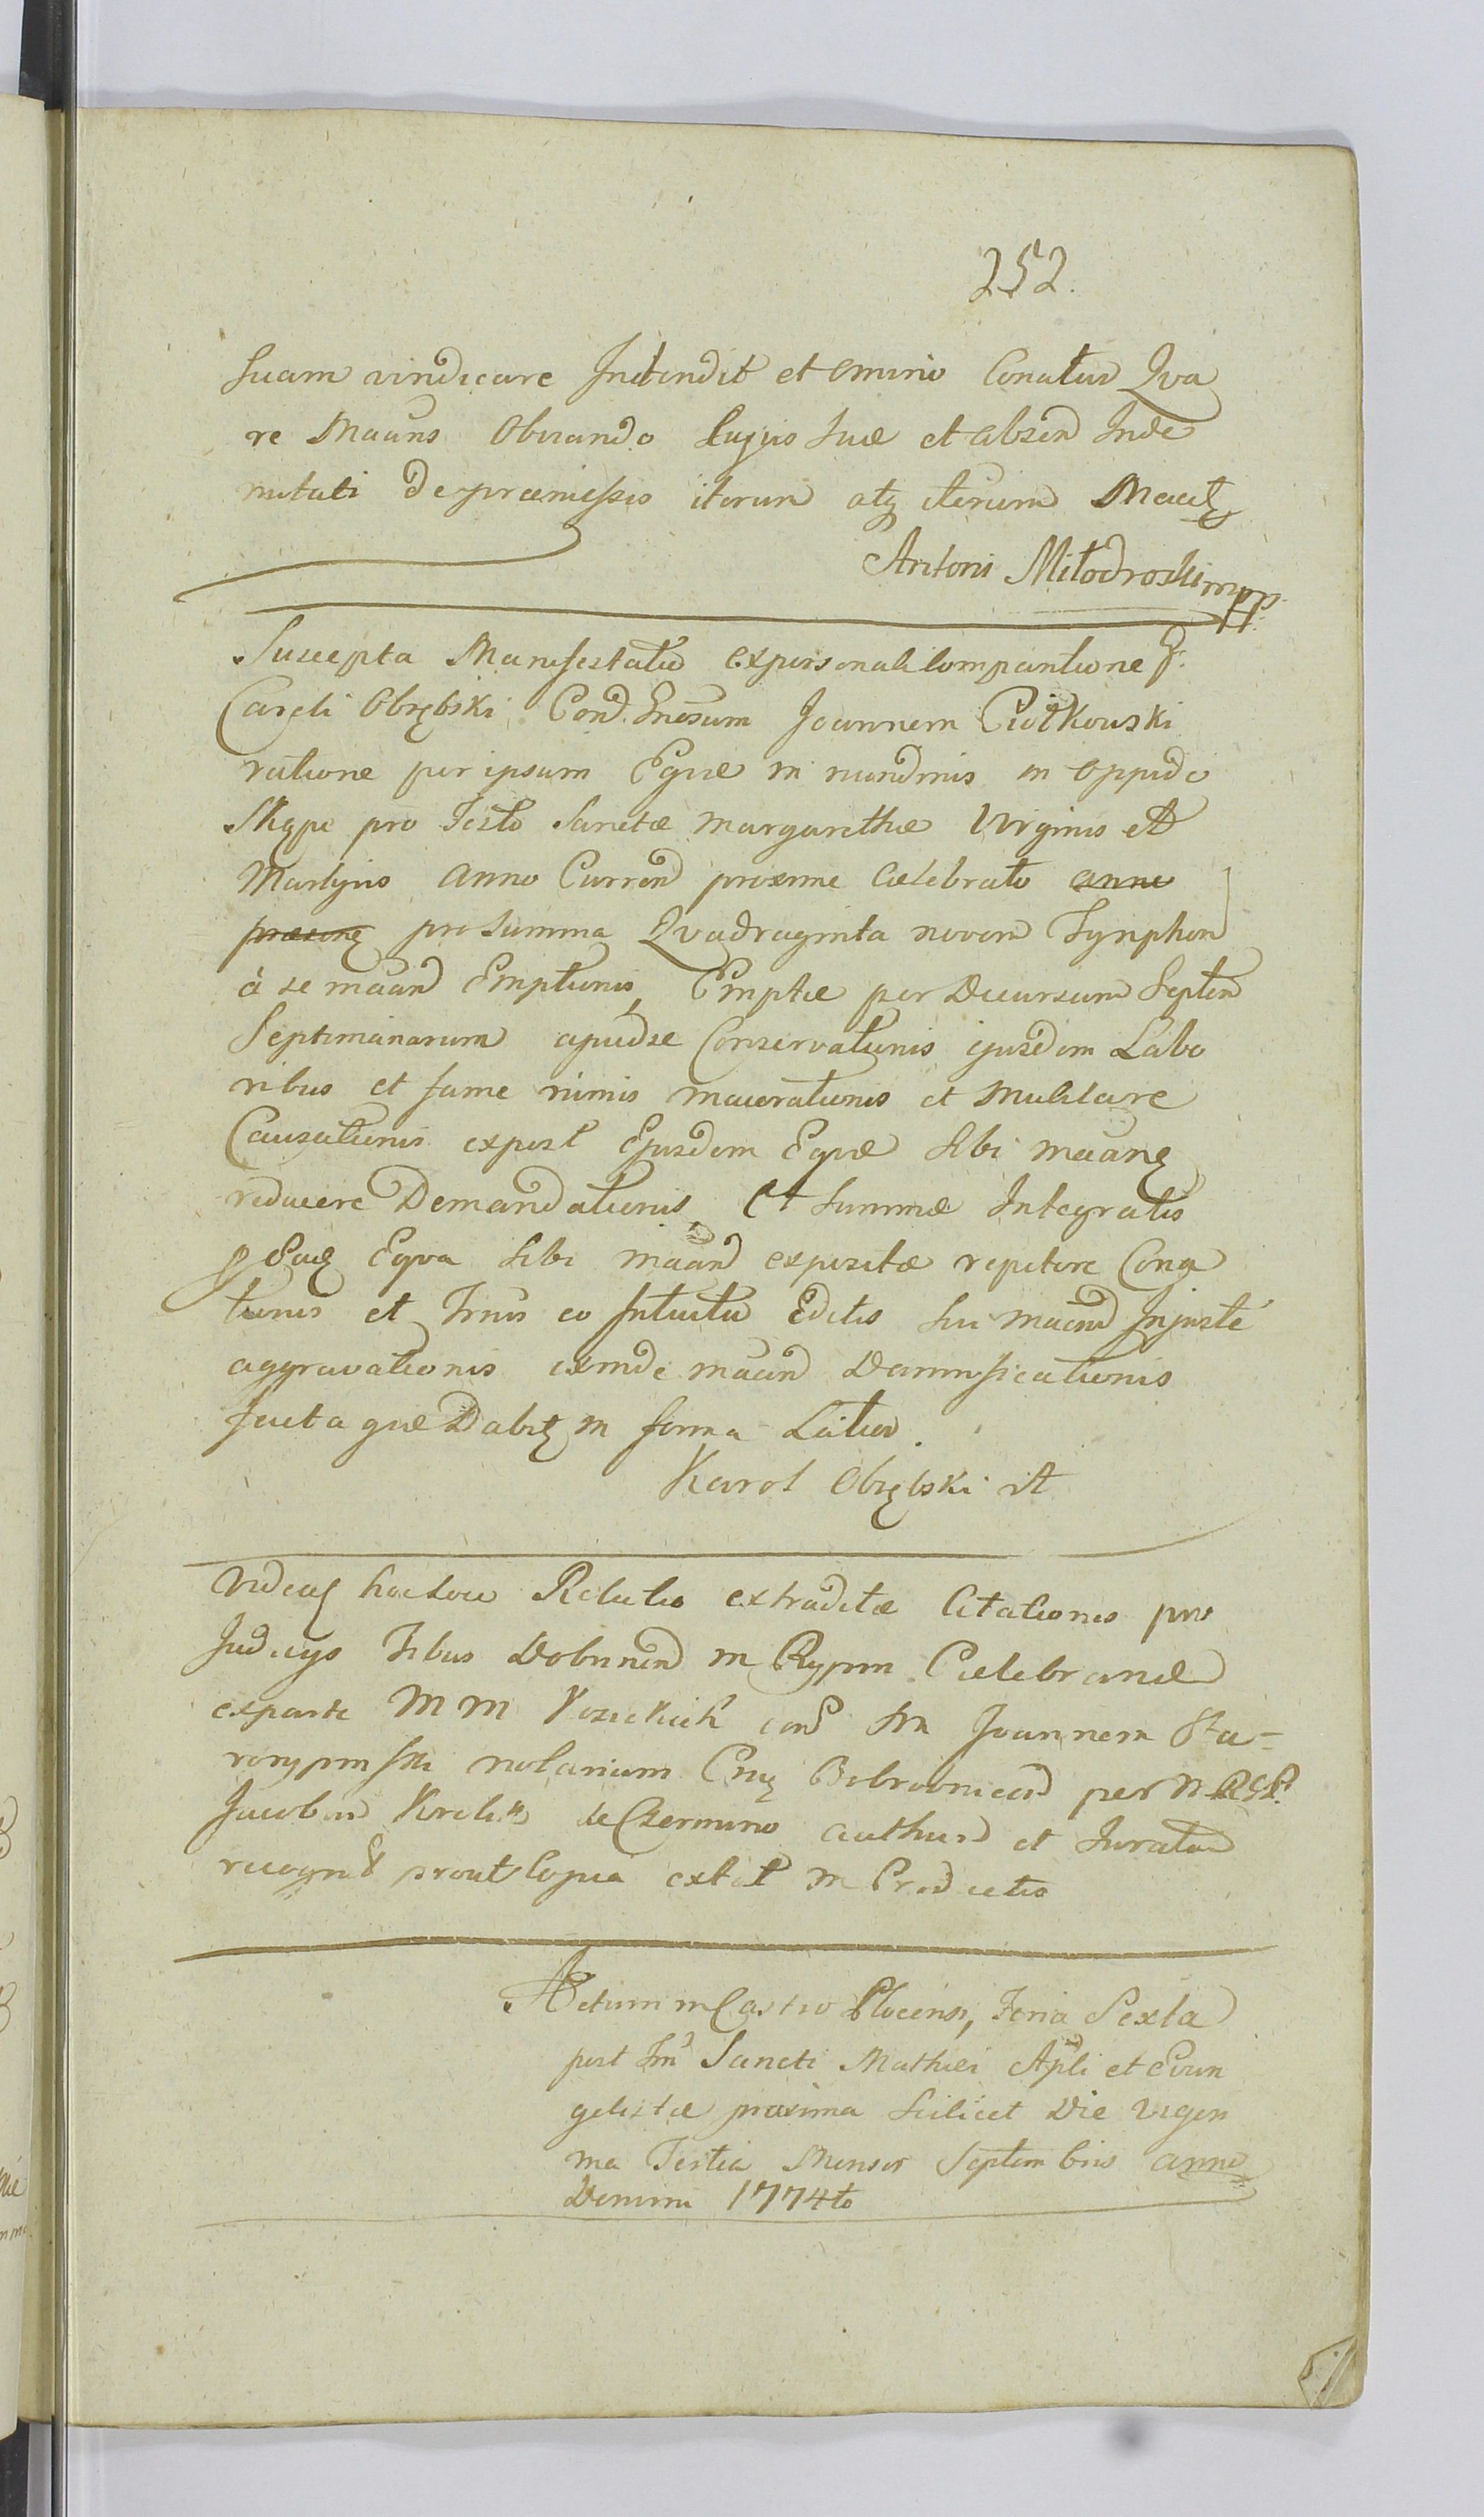 252.
suam vindicare Intendit et omnino Conatur Qva
re Maans Obviando Lujus suæ et absen Inde
nitati de præmissis iterum atq iterum Maatq
Antoni Miłodroski mpp
Suscepta Manifestatio ex personali Comparitione G.
Caroli Obrębski Cond Gnosum Joannem Ciołkowski
ratione per ipsum Equæ in nundinis in Oppido
Skępe pro Festo Sanctæ Margarethæ Virginis et
Martyris Anno Curren proxime Celebrato anno
præsenq pro summa Qvadraginta novem Tynphon
à se maan Emptionis, Emptæ per Decursum Septem
Septimanarum apud se Conservationis ejusdem Labo
ribus et fame nimis macerationis et Mulctare
Causationis expost Ejusdem Equæ sibi maanq
reducere Demandationis, et summæ Integratis
p Eadq Eqva sibi maan expositæ repetere Cona
tionis et Trnis eo Intuitu Editis sui maan Injuste
aggravationis exinde maan Damnificationis
facta quæ Dabitq in forma Latior.
Karol Obrębski
Videatq hoc loco Relatio extraditæ Citationis pro
Judicijs Tibus Dobrinen in Rypin Celebrand
ex parte M M Kozickich cond M Joannem Sta-
rorypinski notarium Cnq Bobrovnicen per
Jacobum de Czermino authen et Juratum
recognit prout Copia extat in Productis
Actum in Castro Plocensi, Feria Sexta
post Fm Sancti Mathæi Apli et Evan
gelistæ proxima scilicet Die Vigesi
ma Tertia Mensis Septembris anno
Domini 1774to